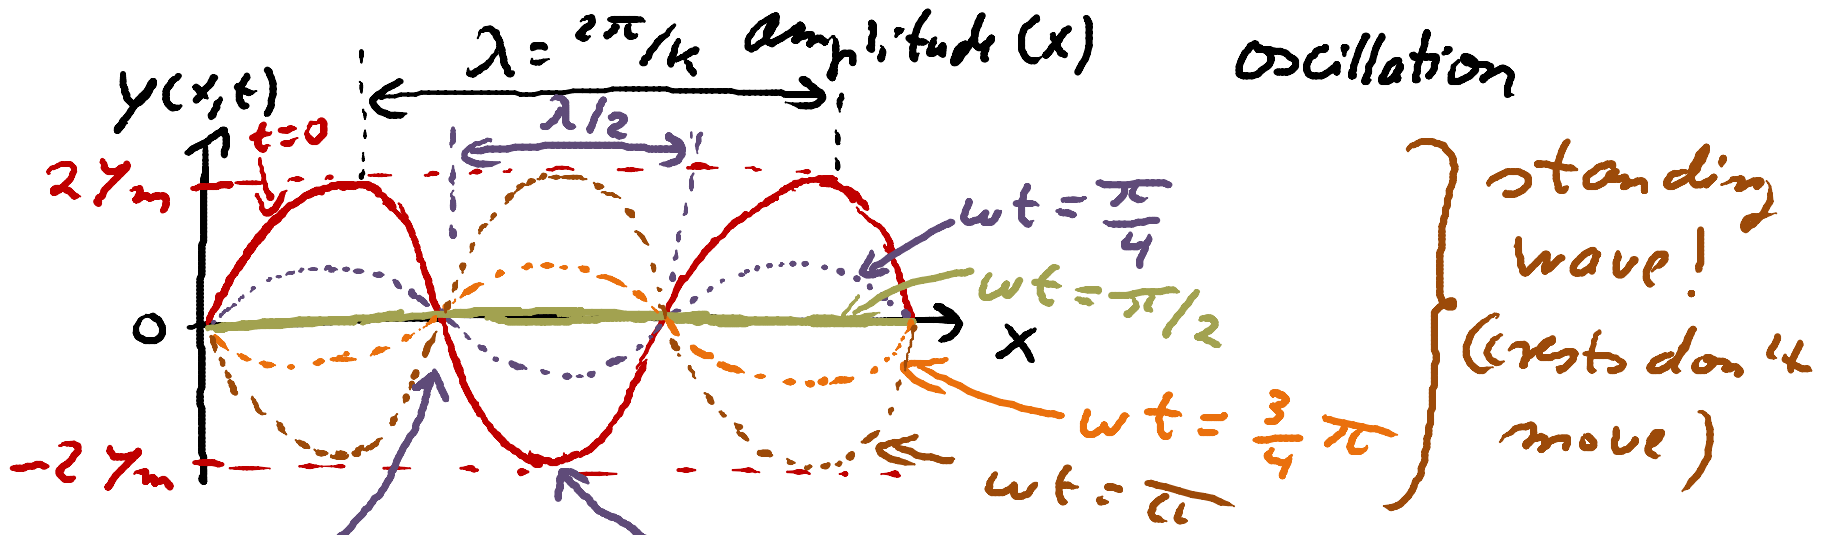 λ = 2π/k amplitude (x) oscillation
y(x,t)
t=0
λ/2
2 ym
ωt = π/4
ωt = π/2
0
x
ωt = 3/4 π
-2 ym
ωt = π
standing
wave!
(crests don't
move)